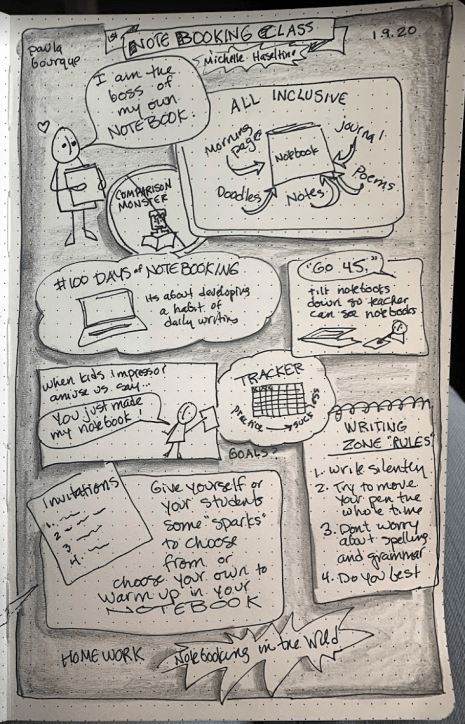 paula
bourque
1st NOTE BOOKING CLASS
Michelle Haseltine
1.9.20
I am the
boss of
my own
NOTEBOOK.
ALL INCLUSIVE
Morning
page
Journal
Notebook
Doodles
Notes
Poems
COMPARISON
MONSTER
#100 DAYS of NOTEBOOKING
Its about developing
a habit of
daily writing
"Go 45."
tilt notebooks
down so teacher
can see notebooks
when kids impress or
amuse us. say...
You just made
my notebook!
TRACKER
practice → success
GOALS?
WRITING
ZONE "RULES"
1. Write silently
2. Try to move
your pen the
whole time
3. Dont worry
about spelling
and grammar
4. Do you best
Invitations
1.
2.
3.
4.
Give yourself or
your students
some "sparks"
to choose
from or
choose your own to
warm up in your
NOTEBOOK
HOMEWORK
Notebooking in the Wild